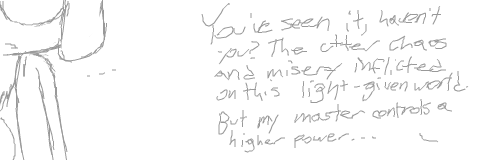 You've seen it, haven't
you? The utter chaos
and misery inflicted
on this light-given world.
But my master controls a
higher power...